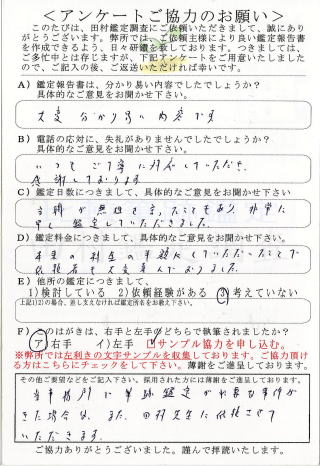 ＜アンケートご協力のお願い＞
このたびは、田村鑑定調査にご依頼いただきまして、誠にあり
がとうございます。弊所では、ご依頼主様により良い鑑定報告書
を作成できるよう、日々研鑽を致しております。つきましては、
ご多忙中とは存じますが、下記アンケートをご用意いたしました
ので、ご記入の後、ご返送いただければ幸いです。
A）鑑定報告書は、分かり易い内容でしたでしょうか？
具体的なご意見をお聞かせ下さい。
大変 分かり易い内容です
B）電話の応対に、失礼がありませんでしたでしょうか？
具体的なご意見をお聞かせ下さい。
いつもご丁寧に対応していただき、
感謝しております。
C）鑑定日数につきまして、具体的なご意見をお聞かせ下さい
当職が無理を言ったこともあり、非常に
早く鑑定していただきました。
D）鑑定料金につきまして、具体的なご意見をお聞かせ下さい。
本来の料金の半額にしていただいたことで
依頼者も大変喜んでおりました。
E）他所の鑑定につきまして、
1）検討している 2）依頼経験がある 3）考えていない
上記1)2)の場合、差し支えなければ鑑定所名をお教え下さい。
F）このはがきは、右手と左手のどちらで執筆されましたか？
ア）右手 イ）左手 サンプル協力を申し込む。
※弊所では左利きの文字サンプルを収集しております。ご協力頂け
る方はこちらにチェックをして下さい。薄謝をご進呈しております。
その他ご要望などをご記入下さい。採用された方には薄謝をご進呈しております。
当事務所に筆跡鑑定が必要な事件が
きた場合は、また、田村先生に依頼させて
いただきます。
ご協力ありがとうございました。謹んで拝読いたします。